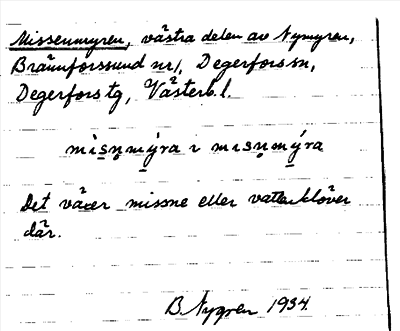 Missenmyren, västra delen av Nymyren,
Brännforssund nr 1, Degerfors sn,
Degerfors tg, Västerb. l.
mìsn̥mýra ı mısn̥mýra
Det växer missne eller vattenklöver
där.
B. Nygren 1934.